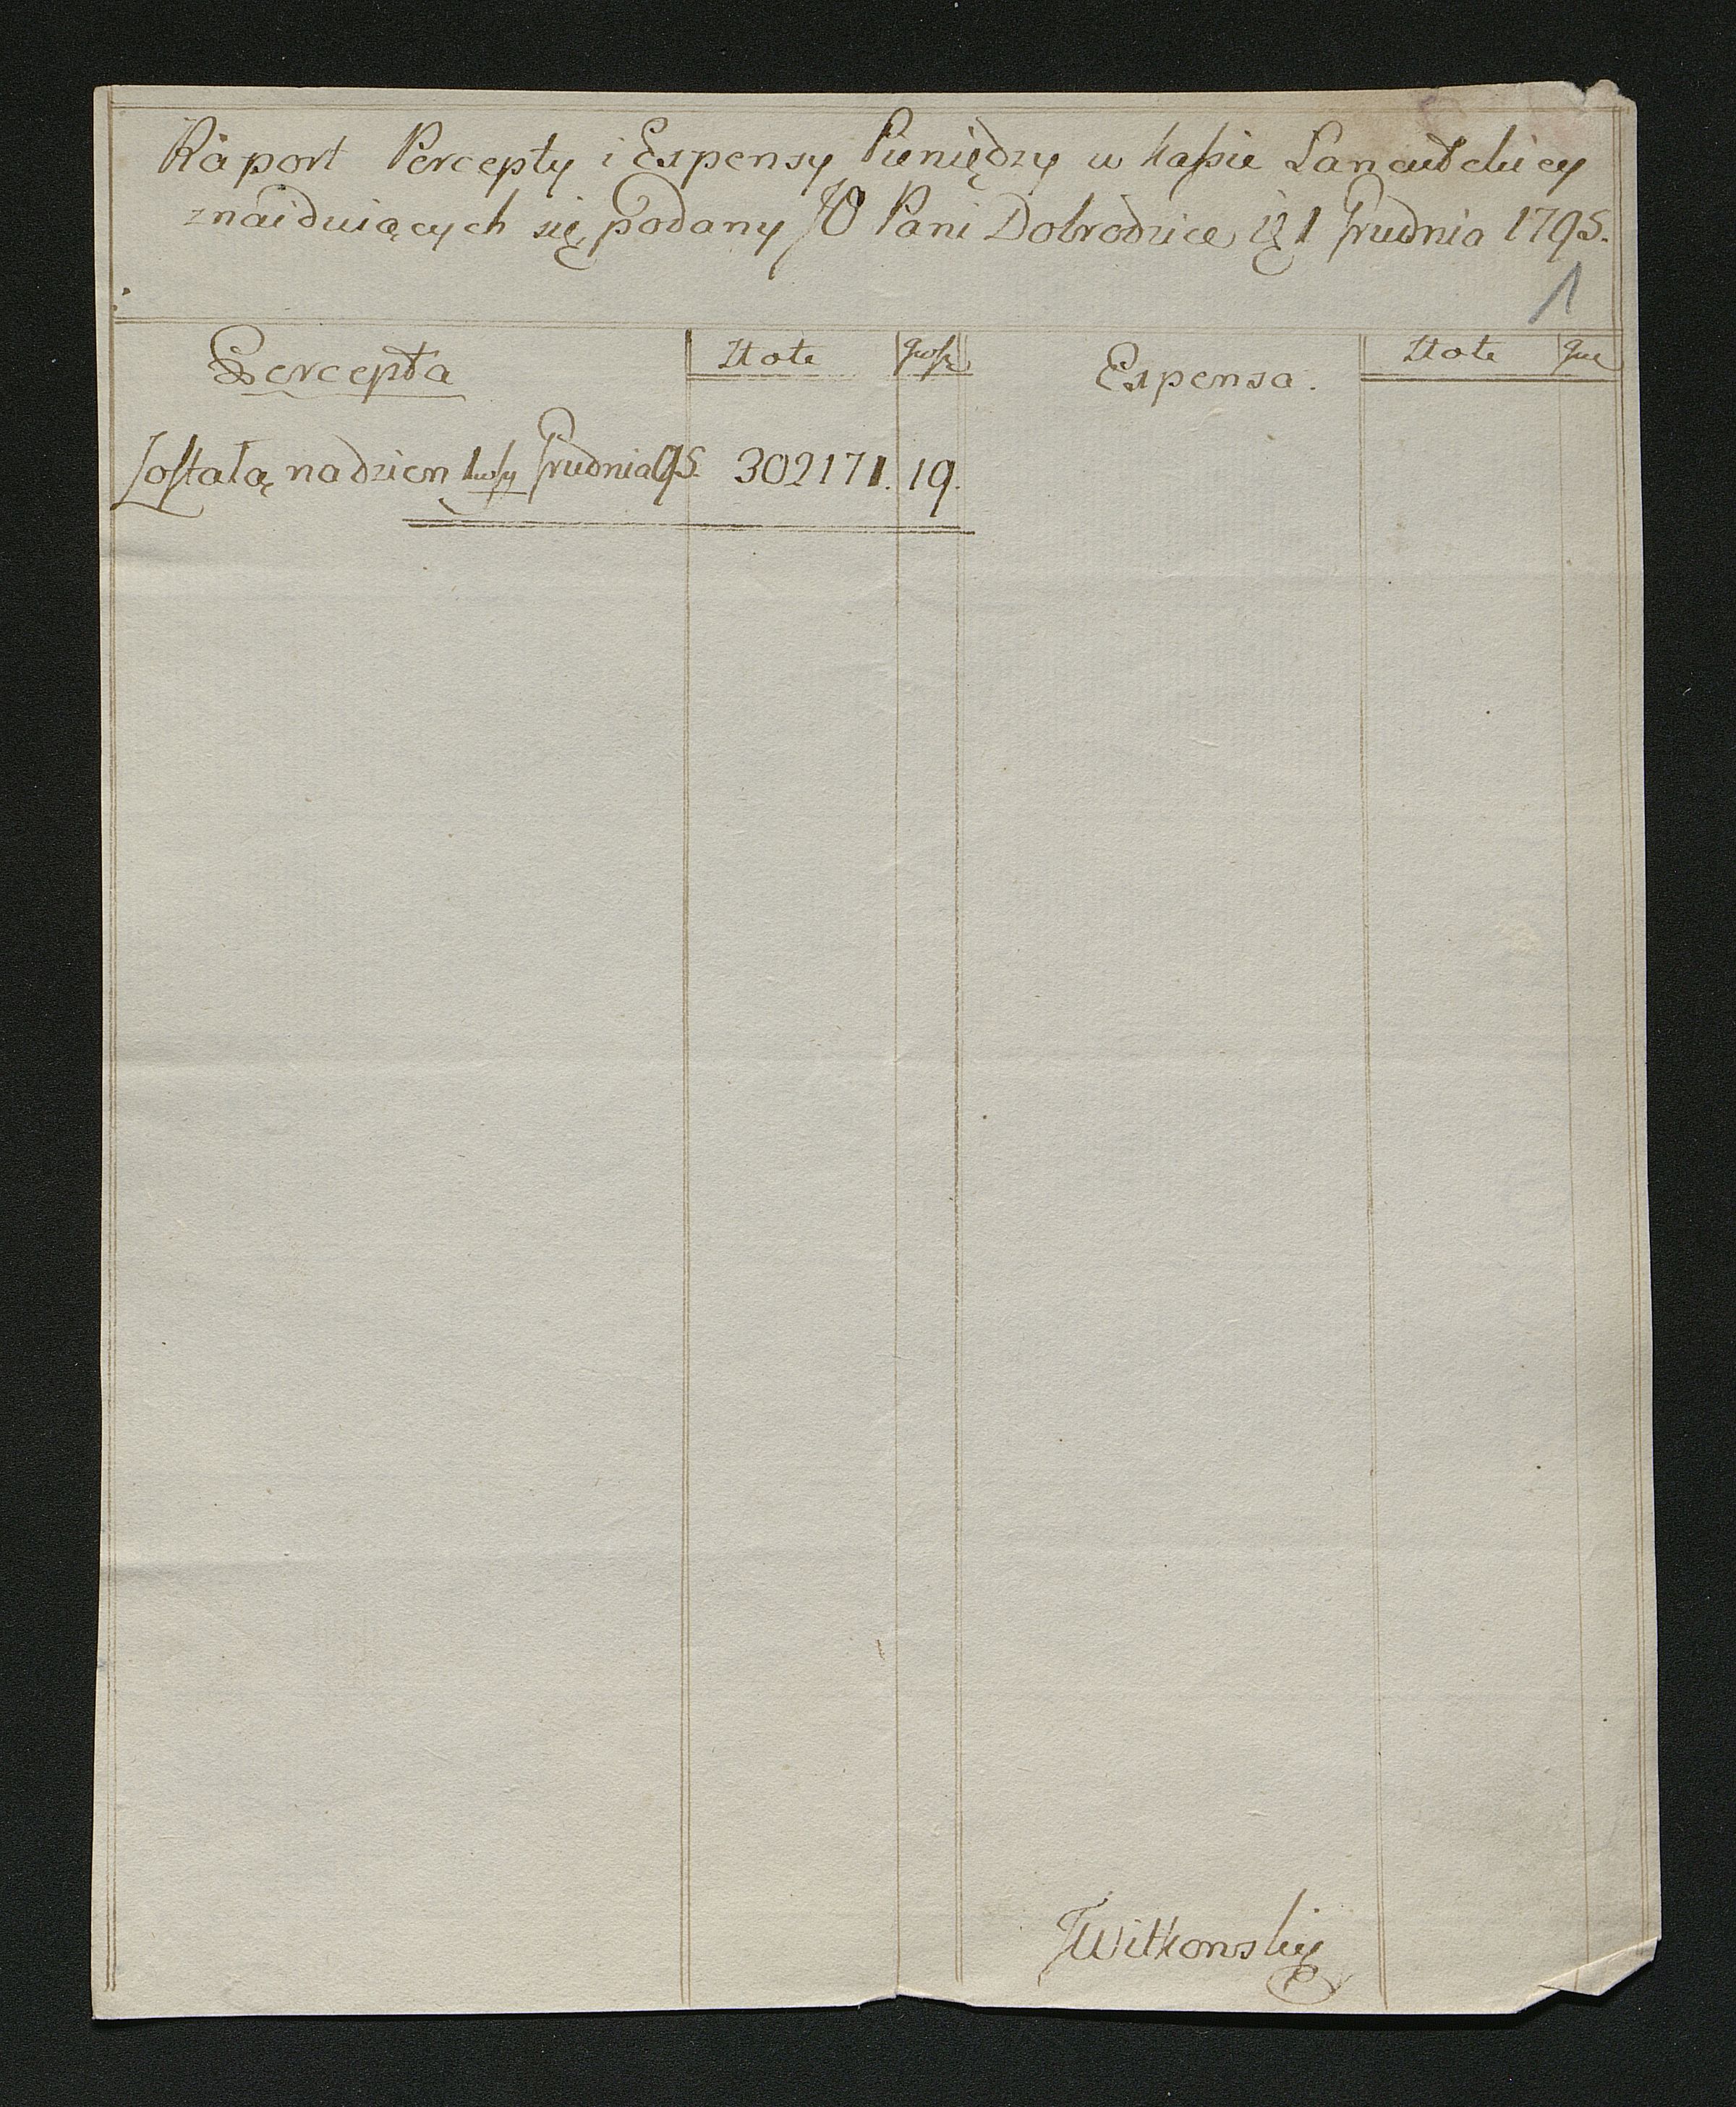 Raport Percepty i Expensy Pieniędzy w kaſsie Lancutckiey
znaiduiących się podany JO Pani Dobrodzice 1 Grudnia 1795.
1
Percepta Złote groſz Expensa. Złote
Zostalą na dzien 1wszy Grudnia 95. 302171. 19.
JWitkowskij